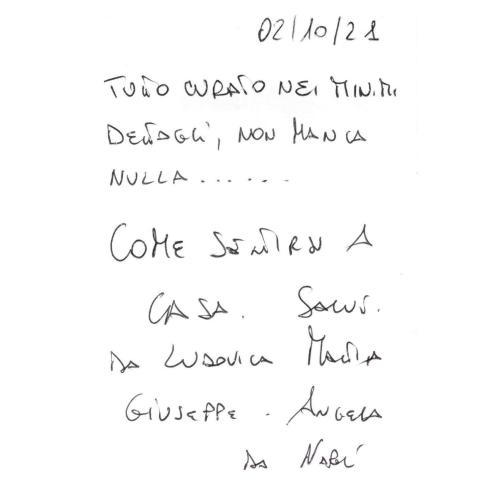 02/10/21
TUTTO CURATO NEI MINIMI
DETTAGLI, NON MANCA
NULLA......
COME SENTIRSI A
CASA. SALUTI.
DA LUDOVICA MATTIA
GIUSEPPE. ANGELA
DA NAPOLI